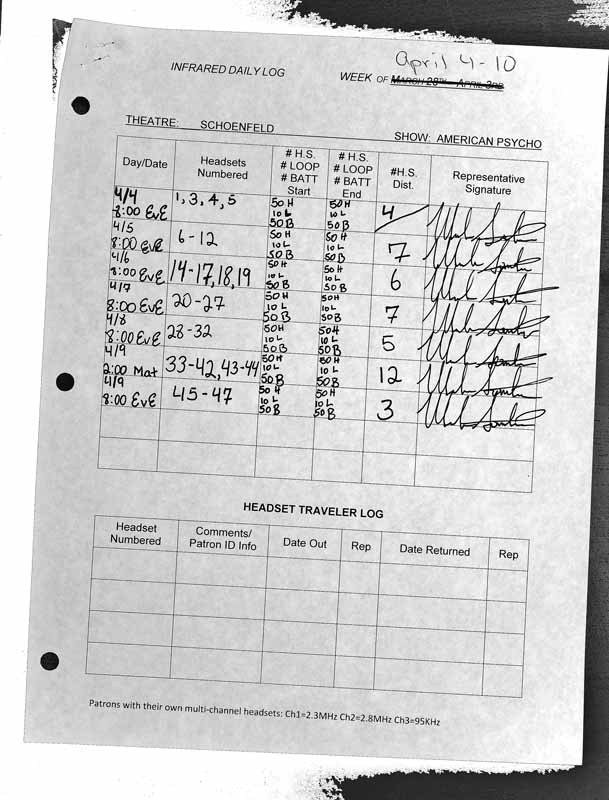 April 4-10
INFRARED DAILY LOG WEEK OF MARCH 28TH - APRIL 3RD
THEATRE: SCHOENFELD SHOW: AMERICAN PSYCHO
Day/Date
Headsets
Numbered
# H.S.
# LOOP
# BATT
Start
# H.S.
# LOOP
# BATT
End
#H.S.
Dist.
Representative
Signature
4/4
8:00 EvE
1, 3, 4, 5
50 H
10 L
50 B
50 H
10 L
50 B
4
4/5
8:00 EvE
6-12
50 H
10 L
50 B
50 H
10 L
50 B
7
4/6
8:00 EvE
14-17, 18, 19
50 H
10 L
50 B
50 H
10 L
50 B
6
4/7
8:00 EvE
20-27
50 H
10 L
50 B
50 H
10 L
50 B
7
4/8
8:00 EvE
28-32
50 H
10 L
50 B
50 H
10 L
50 B
5
4/9
2:00 Mat
33-42, 43-44
50 H
10 L
50 B
50 H
10 L
50 B
12
4/9
8:00 EvE
45-47
50 H
10 L
50 B
50 H
10 L
50 B
3
HEADSET TRAVELER LOG
Headset
Numbered
Comments/
Patron ID Info
Date Out
Rep
Date Returned
Rep
Patrons with their own multi-channel headsets: Ch1=2.3MHz Ch2=2.8MHz Ch3=95KHz